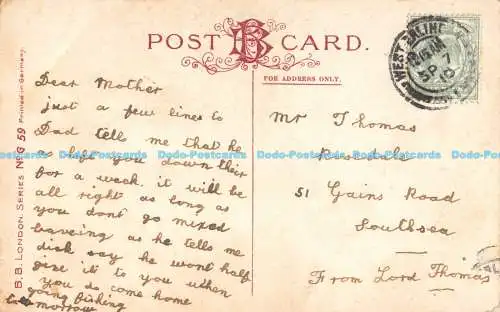 POST B CARD.
FOR ADDRESS ONLY.
B.B. LONDON. SERIES No G 59 Printed in Germany.
WEST EALING
SP 7
10
Dear Mother
just a few lines to
Dad tell me that he
as left you down their
for a week. it will be
all right as long as
you dont go mixed
baveing as he tells me
dick say he wont half
give it to you when
you do come home
going fishing
tomorrow
Mr Thomas
Rosedale
51 Gains Road
Southsea
From Lord Thomas
Dodo-Postcards Dodo-Postcards Dodo-Postcards Dodo-Postcards Dodo-Postcards